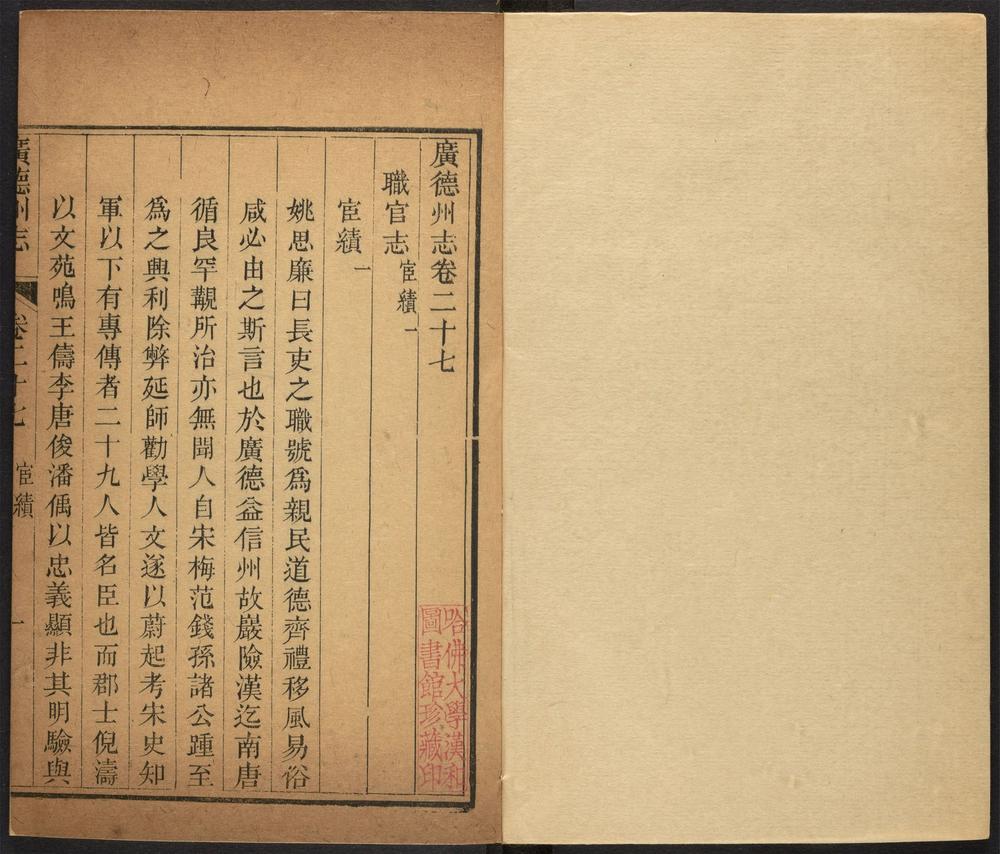 廣德州志卷二十七
職官志 宦績一
宦績一
姚思廉曰長吏之職號爲親民道德齊禮移風易俗
咸必由之斯言也於廣德益信州故巖險漢迄南唐
循良罕覯所治亦無聞人自宋梅范錢孫諸公踵至
爲之興利除弊延師勸學人文遂以蔚起考宋史知
軍以下有專傳者二十九人皆名臣也而郡士倪濤
以文苑鳴王儔李唐俊潘偊以忠義顯非其明驗與
廣德州志 卷二十七 宦績 一
哈佛大學漢和
圖書館珍藏印